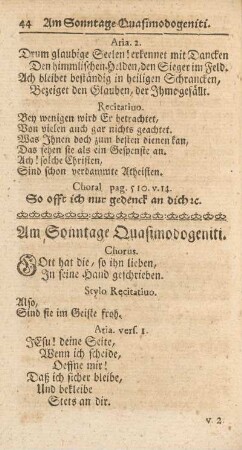 44 Am Sonntage Quasimodogeniti.
Aria. 2.
Drum glaubige Seelen! erkennet mit Dancken
Den himmlischen Helden, den Sieger im Feld.
Ach bleibet beständig in heiligen Schrancken,
Bezeiget den Glauben, der Ihmogefällt.
Recitatiuo.
Bey wenigen wird Er betrachtet,
Von vielen auch gar nichts geachtet.
Was Ihnen doch zum besten dienen kan,
Das sehen sie als ein Gespenste an.
Ach! solche Christen,
Sind schon verdammte Atheisten.
Choral pag. 510. v. 14.
So offt ich nur gedenck an dich ꝛc.
Am Sonntage Quasimodogeniti.
Chorus.
GOtt hat die, so ihn lieben,
In seine Hand geschrieben.
Stylo Recitatiuo.
Also,
Sind sie im Geiste froh.
Aria. vers. 1.
JEsu! deine Seite,
Wenn ich scheide,
Oeffne mir!
Daß ich sicher bleibe,
Und bekleibe
Stets an dir.
v. 2.